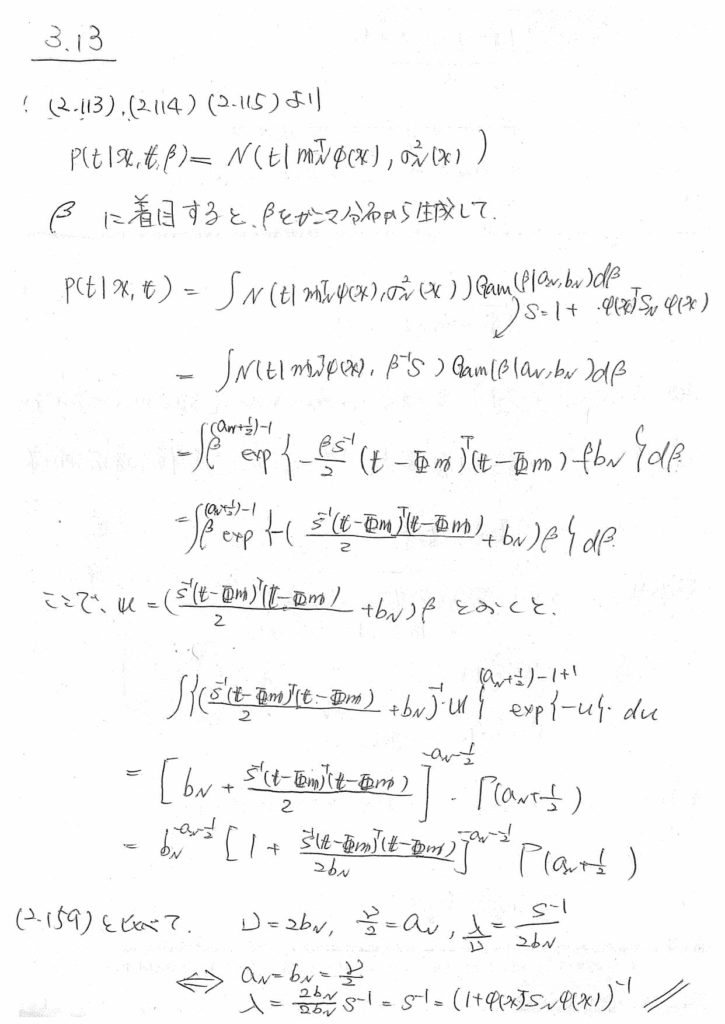 3.13
(2.113), (2.114) (2.115) より
P(t|x, t, β) = N(t|m_N^T φ(x), σ_N^2(x))
β に着目すると、βをガンマ分布から生成して.
P(t|x, t) = ∫N(t|m_N^T φ(x), σ_N^2(x)) Gam(β|a_N, b_N)dβ
S = 1 + φ(x)^T S_N φ(x)
= ∫N(t|m_N^T φ(x), β^{-1}S) Gam(β|a_N, b_N)dβ
= ∫β^{(a_N+1/2)-1} exp{-βs^{-1}/2 (t - Φm)^T(t - Φm) - βb_N}dβ
= ∫β^{(a_N+1/2)-1} exp{-(s^{-1}(t-Φm)^T(t-Φm)/2 + b_N)β}dβ.
ここで、u = (s^{-1}(t-Φm)^T(t-Φm)/2 + b_N)β とおくと.
∫{(s^{-1}(t-Φm)^T(t-Φm)/2 + b_N)^{-1}・u}^{(a_N+1/2)-1+1} exp{-u}・du
= [b_N + s^{-1}(t-Φm)^T(t-Φm)/2]^{-a_N-1/2}・Γ(a_N+1/2)
= b_N^{-a_N-1/2} [1 + s^{-1}(t-Φm)^T(t-Φm)/2b_N]^{-a_N-1/2} Γ(a_N+1/2)
(2.159) と比べて. ν = 2b_N, ν/2 = a_N, λ/ν = s^{-1}/2b_N
⇔ a_N = b_N = ν/2
λ = 2b_N/2b_N s^{-1} = s^{-1} = (1+φ(x)^T S_N φ(x))^{-1} //